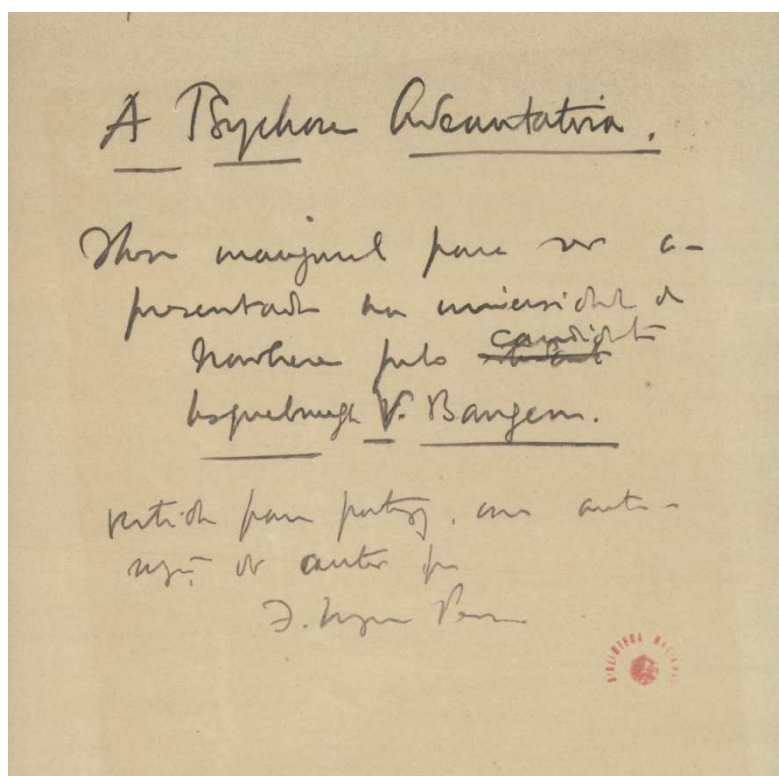 A Psychose Adeantativa.
These inaugural para ser a-
presentada na universidade de
Nowhere pelo candidato
Usquebaugh V. Bangem.
vertida para portug., com aucto-
do auctor por
F. Nogueira Pessoa
BIBLIOTECA NACIONAL